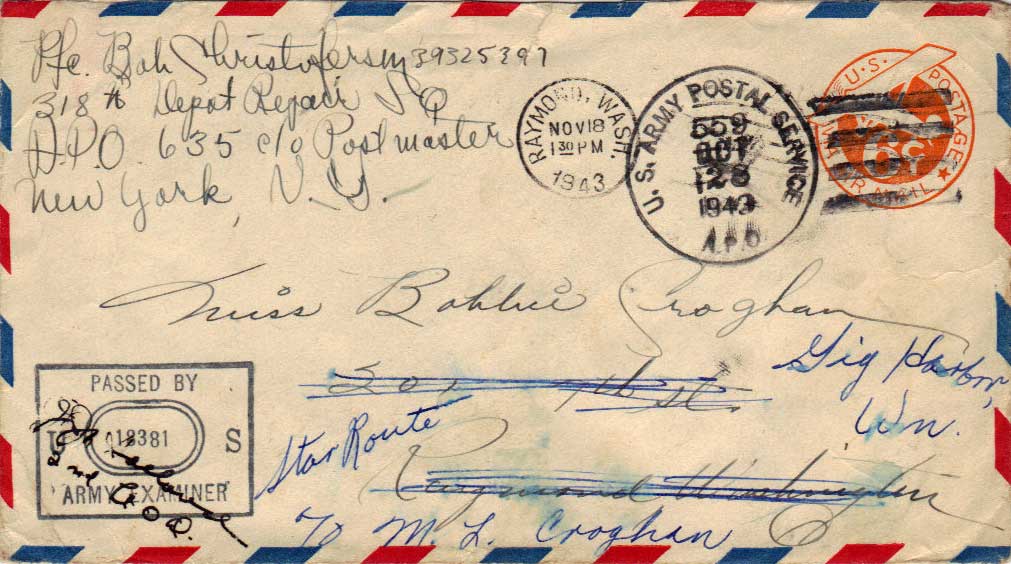 Pfc. Bob Christofersen 39325397
318th Depot Repair SQ
A.P.O. 635 c/o Postmaster
New York, N.Y.
RAYMOND, WASH.
NOV 18
1 30 PM
1943
U.S. ARMY POSTAL SERVICE
559
OCT
28
1943
A.P.O
U.S. POSTAGE
6¢
AIR MAIL
Miss Bobbie Croghan
Gig Harbor,
Wn.
201 7th St.
Star Route
Raymond Washington
% M. L. Croghan
PASSED BY
U 18381 S
ARMY EXAMINER